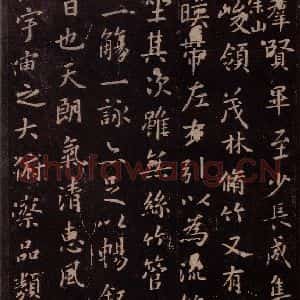 群賢畢至少長咸集
崇山
峻領茂林脩竹又有
暎帶左右引以為流
坐其次雖無絲竹管
一觴一詠亦足以暢叙
日也天朗氣清惠風
宇宙之大俯察品類
Shufawang.CN